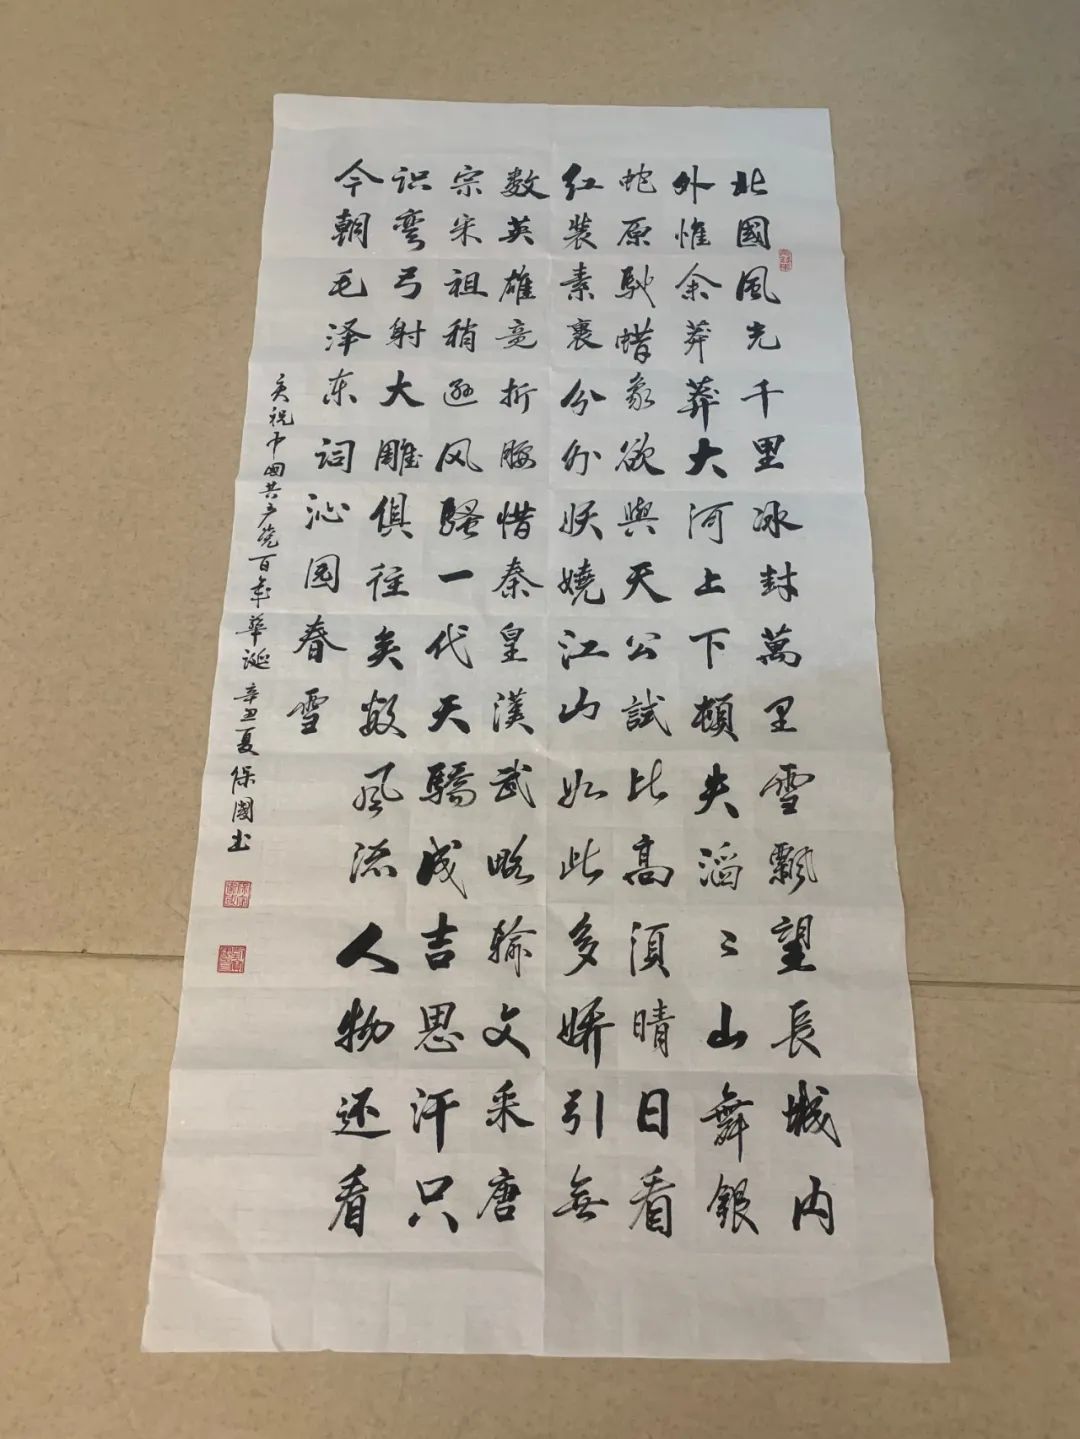 北國風光千里冰封萬里雪飄望長城内
外惟余莽莽大河上下頓失滔〻山舞銀
蛇原馳蜡象欲與天公試比高須晴日看
红装素裹分外妖嬈江山如此多娇引無
数英雄竞折腰惜秦皇漢武略输文采唐
宗宋祖稍逊风騷一代天驕成吉思汗只
识弯弓射大雕俱往矣数风流人物还看
今朝毛泽东词沁园春雪
庆祝中国共产党百年華诞辛丑夏保國书